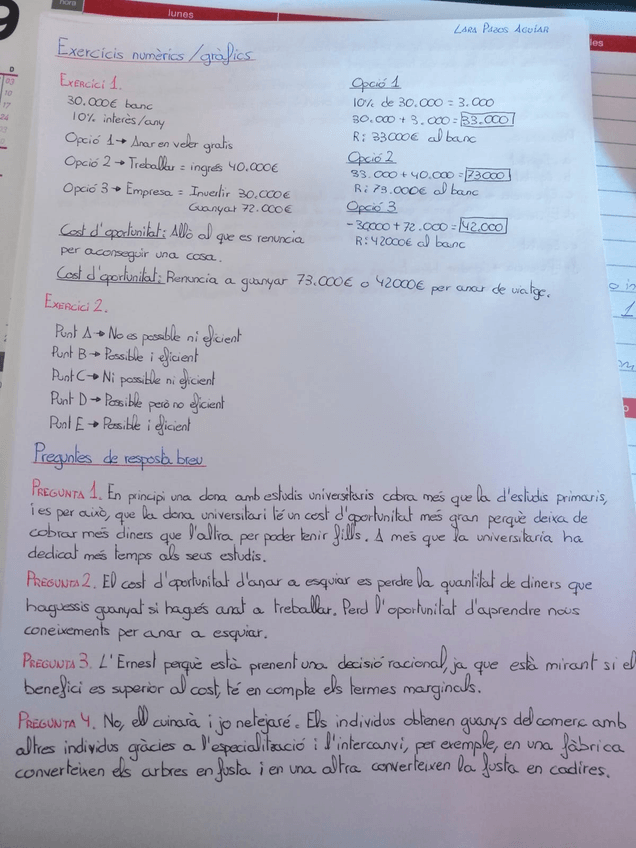 9
hora
lunes
les
LARA PAJOS AGUIAR
Exercicis numèrics/gràfics
D
03
10
17
24
EXERCICI 1.
30.000€ banc
10% interès/any
Opció 1 → Anar en veler gratis
Opció 2 → Treballar = ingrés 40.000€
Opció 3 → Empresa = Invertir 30.000€
Guanyar 72.000€
Cost d'oportunitat: Allò al que es renuncia
per aconseguir una cosa.
Opció 1
10% de 30.000 = 3.000
30.000 + 3.000 = 33.000
R: 33000€ al banc
Opció 2
33.000 + 40.000 = 73000
R: 73.000€ al banc
Opció 3
-30000 + 72.000 = 42.000
R: 42000€ al banc
Cost d'oportunitat: Renuncia a guanyar 73.000€ o 42000€ per anar de viatge.
EXERCICI 2.
Punt A → No es possible ni eficient
Punt B → Possible i eficient
Punt C → Ni possible ni eficient
Punt D → Possible però no eficient
Punt E → Possible i eficient
Preguntes de resposta breu
PREGUNTA 1. En principi una dona amb estudis universitaris cobra més que la d'estudis primaris,
i es per això, que la dona universitari té un cost d'oportunitat més gran perquè deixa de
cobrar més diners que l'altra per poder tenir fills. A més que la universitaria ha
dedicat més temps als seus estudis.
PREGUNTA 2. El cost d'oportunitat d'anar a esquiar es perdre la quantitat de diners que
haguessis guanyat si hagués anat a treballar. Perd l'oportunitat d'aprendre nous
coneixements per anar a esquiar.
PREGUNTA 3. L'Ernest perquè està prenent una decisió racional, ja que està mirant si el
benefici es superior al cost, té en compte els termes marginals.
PREGUNTA 4. No, ell cuinarà i jo netejaré. Els individus obtenen guanys del comerç amb
altres individus gràcies a l'especialització i l'intercanvi, per exemple, en una fàbrica
converteixen els arbres en fusta i en una altra converteixen la fusta en cadires.